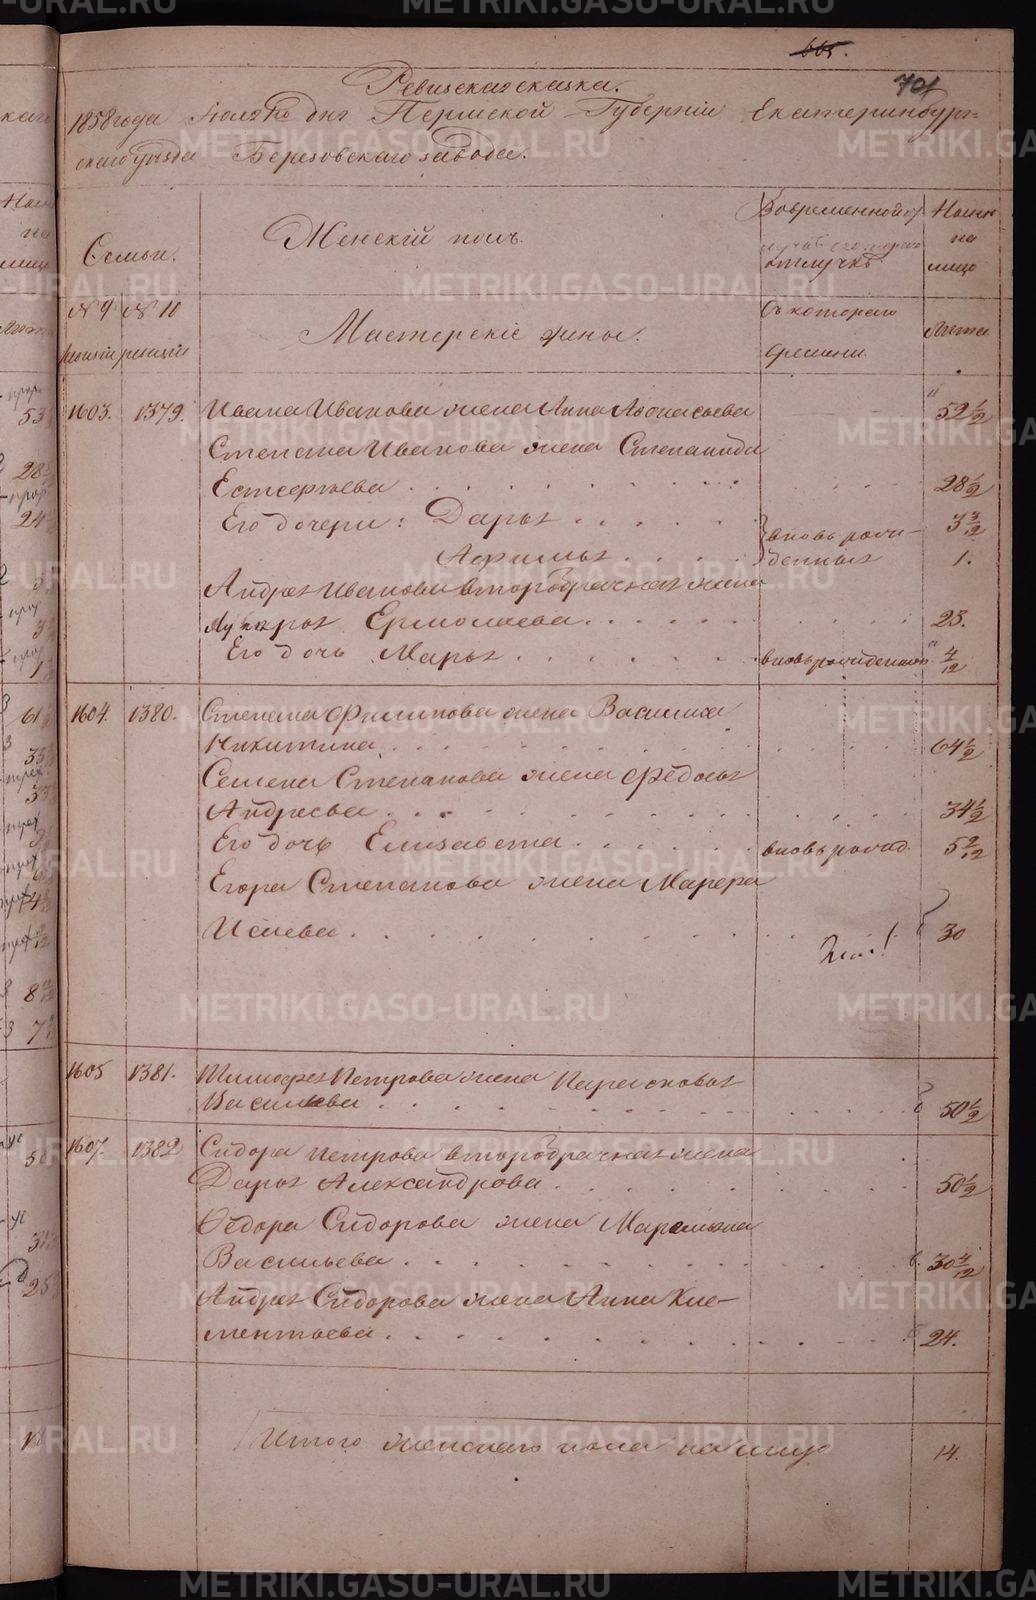 665.
701
Ревизская сказка.
1858 года Июля дня Пермской Губерніи Екатеринбург-
скаго уѣзда Березовскаго завода.
Семьи.
Женскій полъ.
Во временной
отлучкѣ
Нынѣ
на
лицо
№ 9 № 10
ревизіи ревизіи
Мастерскіе жены.
Съ котораго
времени
Лѣта
1603. 1379. Ивана Иванова жена Анна Афонасьева 52 1/2
Степана Иванова жена Степанида
Евстегнева 28 1/2
Его дочери: Дарья 3 3/12
вновь рож-
денныя
Афимья 1.
Андрея Иванова второбрачная жена
Ермолаева 23.
Его дочь Марья вновь рожденная 4/12
1604. 1380. Степана Филипова жена Василиса
Никитина 64 1/2
Семена Степанова жена Федосья
Андреева 34 1/2
Его дочь Елизавета вновь рожд. 5 2/12
Егора Степанова жена Марфа
Исаева 30
1605 1381. Тимофея Петрова жена Парасковья
Васильева 50 1/2
1607. 1382 Сидора Петрова второбрачная жена
Дарья Александрова 50 1/2
Федора Сидорова жена Маремьяна
Васильева 30 4/12
Андрея Сидорова жена Анна Кле-
ментьева 24.
Итого женскаго пола на лицо 14.
METRIKI.GASO-URAL.RU